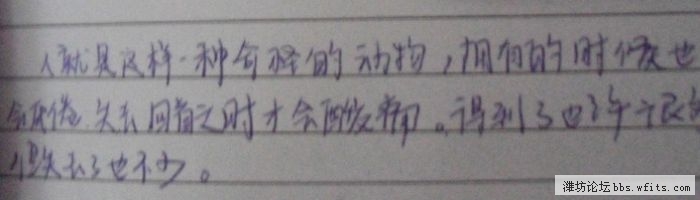 人就是这样一种奇怪的动物，拥有的时候也
会厌倦 失去回首之时才会酸痛。得到了也许
但失去了也不少。
潍坊论坛bbs.wfits.com